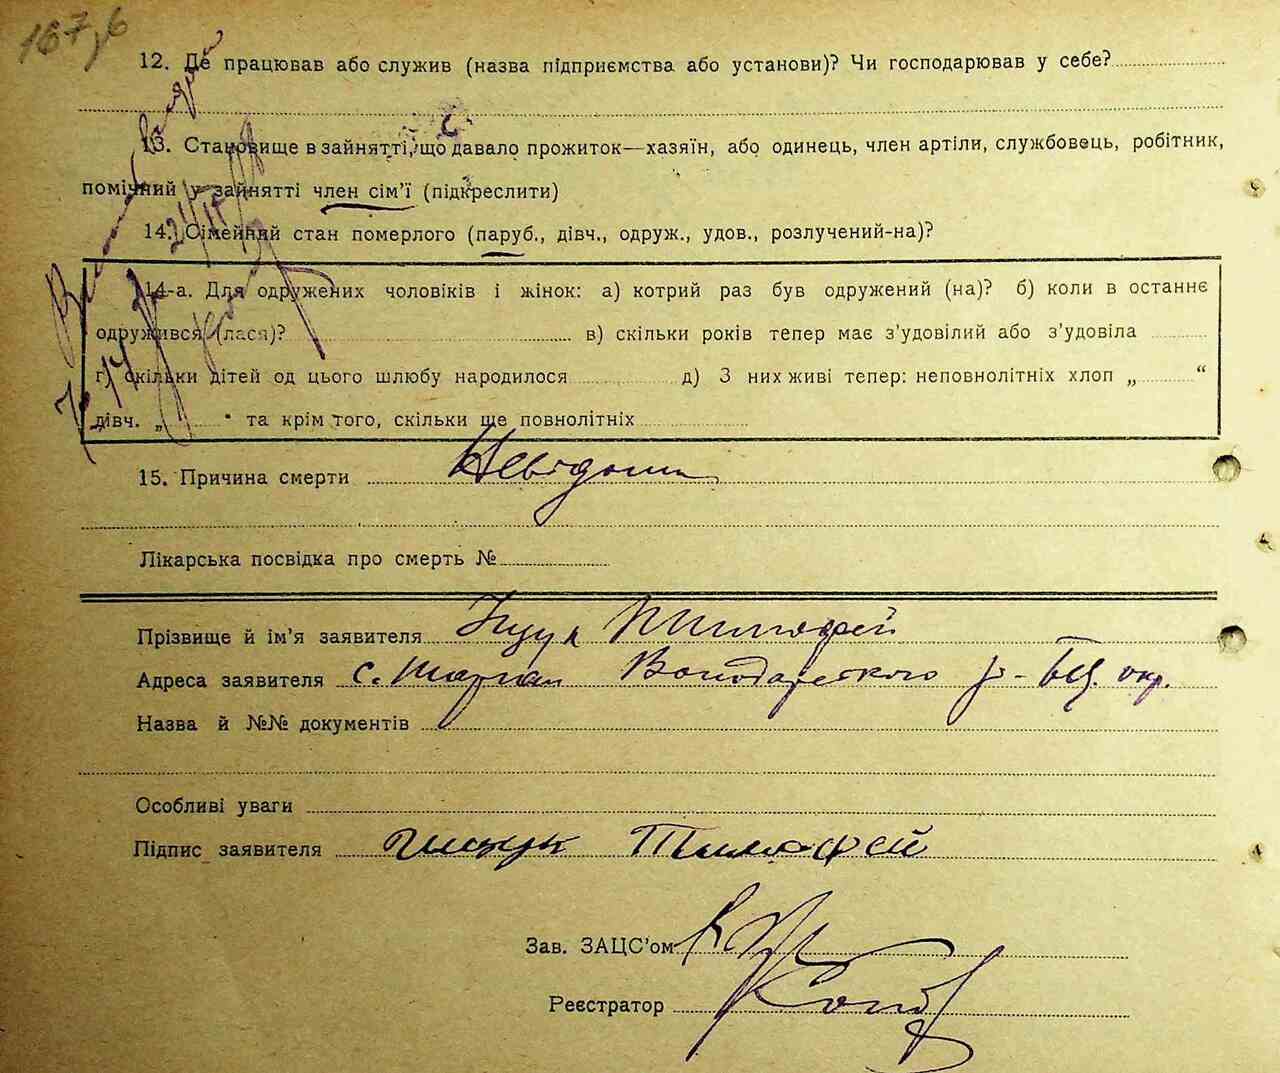 167,6
12. Де працював або служив (назва підприємства або установи)? Чи господарював у себе?
13. Становище в зайнятті, що давало прожиток—хазяїн, або одинець, член артіли, службовець, робітник,
помічний у зайнятті член сім’ї (підкреслити)
14. Сімейний стан померлого (паруб., дівч., одруж., удов., розлучений-на)?
14-а. Для одружених чоловіків і жінок: а) котрий раз був одружений (на)? б) коли в останнє
одружився (лася)? в) скільки років тепер має з’удовілий або з’удовіла
г) скільки дітей од цього шлюбу народилося д) З них живі тепер: неповнолітніх хлоп „ “
дівч. „ “ та крім того, скільки ще повнолітніх
15. Причина смерти Невідома
Лікарська посвідка про смерть №
Прізвище й ім’я заявителя Тимофей
Адреса заявителя с. Володарського р- БЦ. окр.
Назва й №№ документів
Особливі уваги
Підпис заявителя Тимофей
Зав. ЗАЦС’ом
Реєстратор